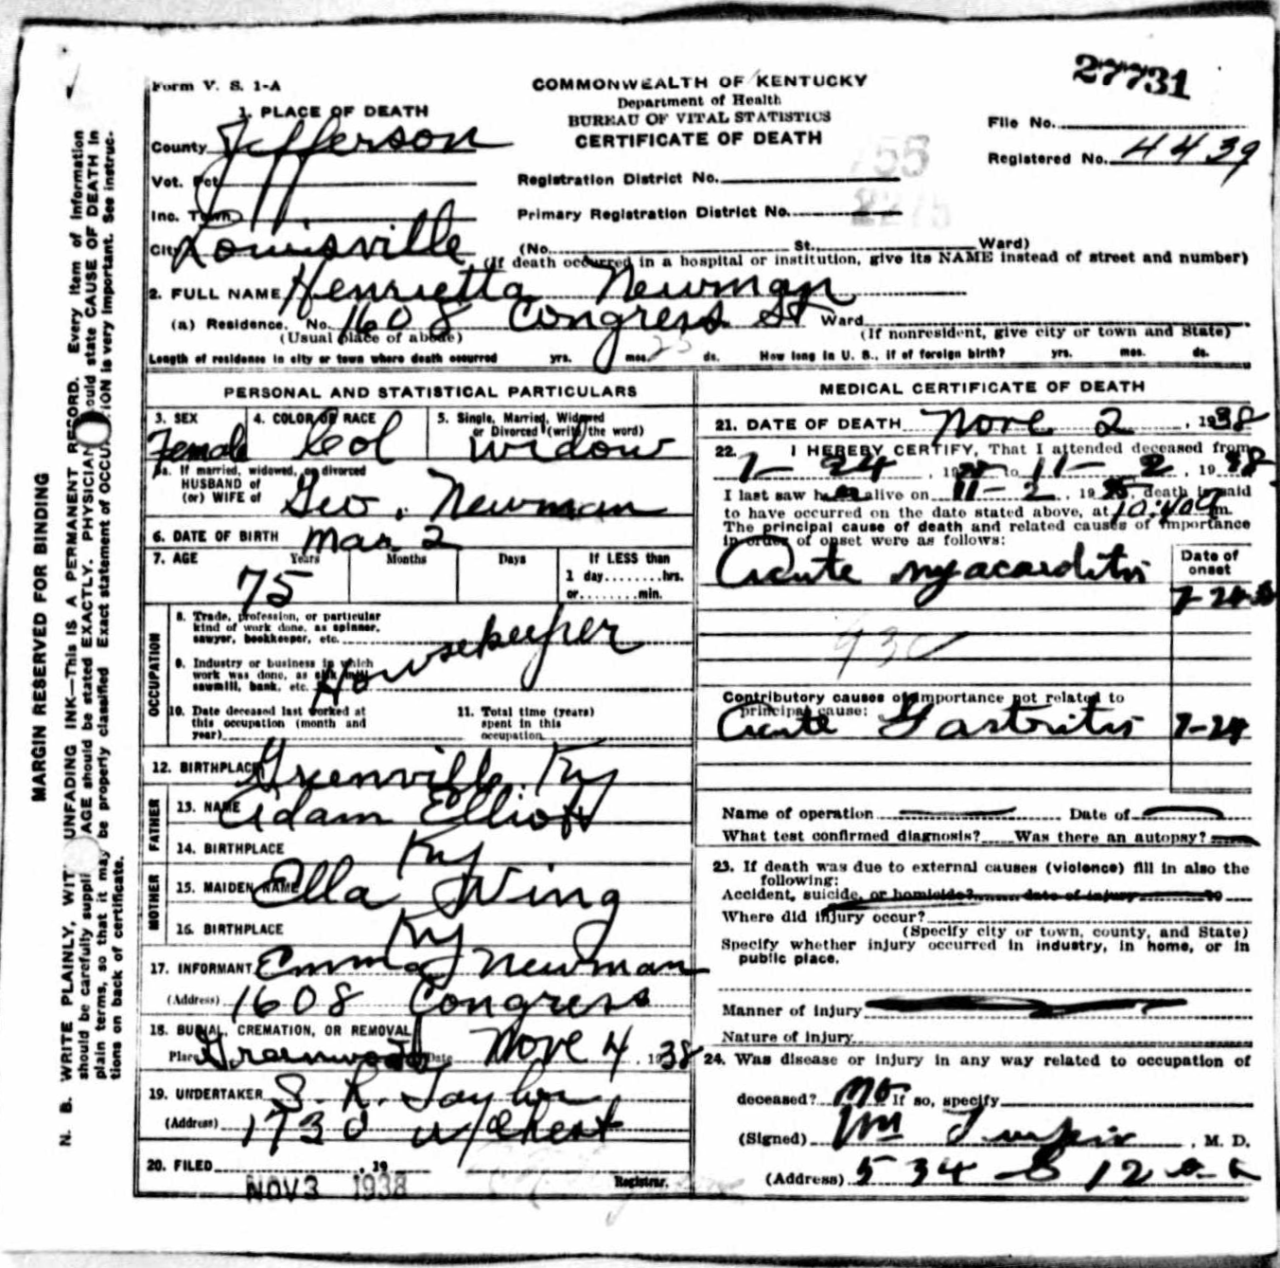 27731
Form V. S. 1-A
COMMONWEALTH OF KENTUCKY
Department of Health
BUREAU OF VITAL STATISTICS
CERTIFICATE OF DEATH
File No.
Registered No. 4439
1. PLACE OF DEATH
County Jefferson
Vot. Pct.
Inc. Town
City Louisville
Registration District No.
Primary Registration District No.
(No. St. Ward)
(If death occurred in a hospital or institution, give its NAME instead of street and number)
2. FULL NAME Henrietta Newman
(a) Residence. No. 1608 Congress St Ward
(Usual place of abode)
(If nonresident, give city or town and State)
Length of residence in city or town where death occurred yrs. mos. ds. How long in U. S., if of foreign birth? yrs. mos. ds.
PERSONAL AND STATISTICAL PARTICULARS
3. SEX
Female
4. COLOR OR RACE
Col
5. Single, Married, Widowed
or Divorced (write the word)
Widow
5a. If married, widowed, or divorced
HUSBAND of
(or) WIFE of Geo. Newman
6. DATE OF BIRTH Mar 2
7. AGE Years Months Days
75
If LESS than
1 day........hrs.
or........min.
OCCUPATION
8. Trade, profession, or particular
kind of work done, as spinner,
sawyer, bookkeeper, etc.
Housekeeper
9. Industry or business in which
work was done, as silk mill,
sawmill, bank, etc.
10. Date deceased last worked at
this occupation (month and
year)
11. Total time (years)
spent in this
occupation
12. BIRTHPLACE Greenville Ky
FATHER
13. NAME Adam Elliott
14. BIRTHPLACE Ky
MOTHER
15. MAIDEN NAME Ella Wing
16. BIRTHPLACE Ky
17. INFORMANT Emma Newman
(Address) 1608 Congress
18. BURIAL, CREMATION, OR REMOVAL
Place Greenwood Date Nov 4 1938
19. UNDERTAKER S. R. Taylor
(Address) 1730 W Chest
20. FILED , 19
NOV 3 1938
Registrar.
MEDICAL CERTIFICATE OF DEATH
21. DATE OF DEATH Nov 2, 1938
22. I HEREBY CERTIFY, That I attended deceased from
7-24, 19 to 11-2, 1938
I last saw h alive on 11-2, 19 , death is said
to have occurred on the date stated above, at 10:40 m.
The principal cause of death and related causes of importance
in order of onset were as follows:
Date of
onset
Acute myacarditis
7-24
930
Contributory causes of importance not related to
principal cause:
Acute Gastritis 7-24
Name of operation Date of
What test confirmed diagnosis? Was there an autopsy?
23. If death was due to external causes (violence) fill in also the
following:
Accident, suicide, or homicide? date of injury 19
Where did injury occur?
(Specify city or town, county, and State)
Specify whether injury occurred in industry, in home, or in
public place.
Manner of injury
Nature of injury
24. Was disease or injury in any way related to occupation of
deceased? No If so, specify
(Signed) Wm , M. D.
(Address) 534 S 12
MARGIN RESERVED FOR BINDING
N. B. WRITE PLAINLY, WITH UNFADING INK—This IS A PERMANENT RECORD. Every item of information
should be carefully supplied. AGE should be stated EXACTLY. PHYSICIANS should state CAUSE OF DEATH in
plain terms, so that it may be properly classified. Exact statement of OCCUPATION is very important. See instruc-
tions on back of certificate.